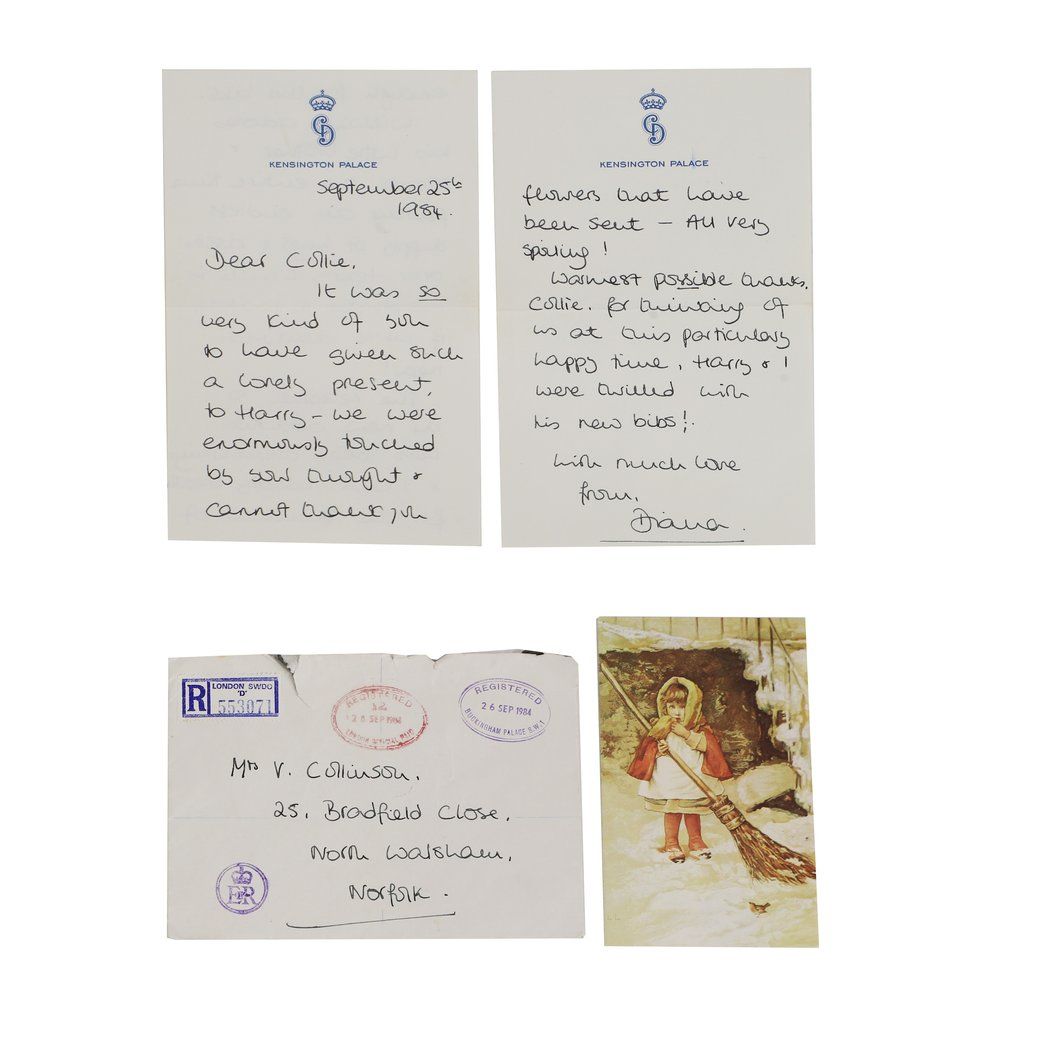 KENSINGTON PALACE
September 25th
1984.
Dear Collie.
It was so
very kind of you
to have given such
a lovely present,
to Harry - we were
enormously touched
by your thought &
cannot thank you
KENSINGTON PALACE
flowers that have
been sent - All very
spoiling!
Warmest possible thanks.
Collie. for thinking of
us at this particulary
happy time, Harry & I
were thrilled with
his new bibs!
With much love
from.
Diana.
R
LONDON SWDO
'D'
553071
REGISTERED
12
26 SEP 1984
REGISTERED
26 SEP 1984
BUCKINGHAM PALACE S.W.1
Mrs V. Collinson.
25. Bradfield Close.
North Walsham.
Norfolk.
EIIR